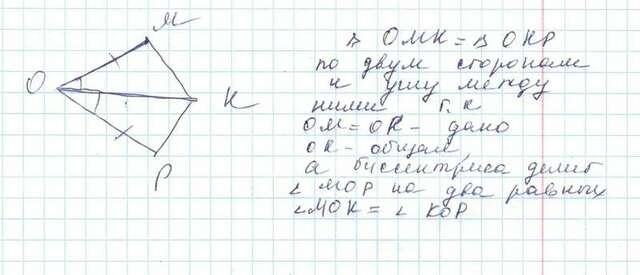 M
O
K
P
Δ OMK = Δ OKP
по двум сторонам
и углу между
ними т. к
OM = OK - дано
OK - общая
а биссектриса делит
∠ MOP на два равных
∠MOK = ∠ KOP